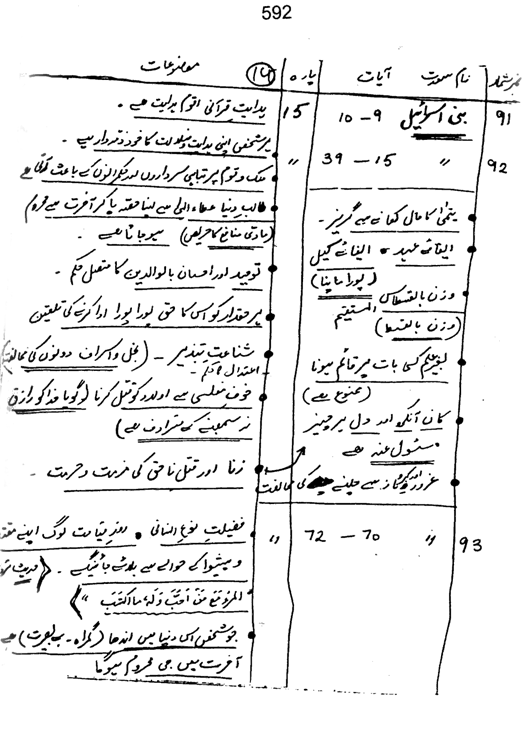 592
نمبر شمار نام سورت آیات پارہ ١٥ موضوعات
91 بنی اسرائیل 9 – 10 15 ہدایت قرآنی اقوم ہدایت ہے۔
ہر شخص اپنی ہدایت و ضلالت کا خود ذمہ دار ہے۔
92 〃 15 – 39 〃 ملک و قوم پر تباہی سرداروں اور حکمرانوں کے باعث آتی ہے
طالب دنیا عطاء الٰہی سے اپنا حصہ پا کر آخرت سے محروم
(مادی منافع کا حریص) ہو جاتا ہے۔
توحید اور احسان بالوالدین کا متصل حکم۔
ہر حقدار کو اس کا حق پورا پورا ادا کرنے کی تلقین
شناعت تبذیر – (بخل و اسراف دونوں کی مخالفت)
– اعتدال کا حکم –
خوف مفلسی سے اولاد کو قتل کرنا (گویا خدا کو رازق
نہ سمجھنے کے مترادف ہے)
زنا اور قتل ناحق کی مذمت و حرمت۔
یتمٰی کا مال کھانے سے گریز۔
ایفائے عہد، ایفائے کیل
(پورا ماپنا)
وزن بالقسطاس المستقیم
(وزن بالقسط)
بغیر علم کسی بات پر قائم ہونا
(ممنوع ہے)
کان آنکھ اور دل ہر چیز
مسئول عنہ ہے
غرور سے چلنے کی مخالفت
93 〃 70 – 72 〃 فضیلت نوع انسانی • روز قیامت لوگ اپنے
و پیشوا کے حوالے سے بلائے جائینگے۔ (حدیث
المرء مع من احب ولہ ما اکتسب")
جو شخص اس دنیا میں اندھا (گمراہ - بے بصیرت) ہے
آخرت میں بھی محروم ہو گا